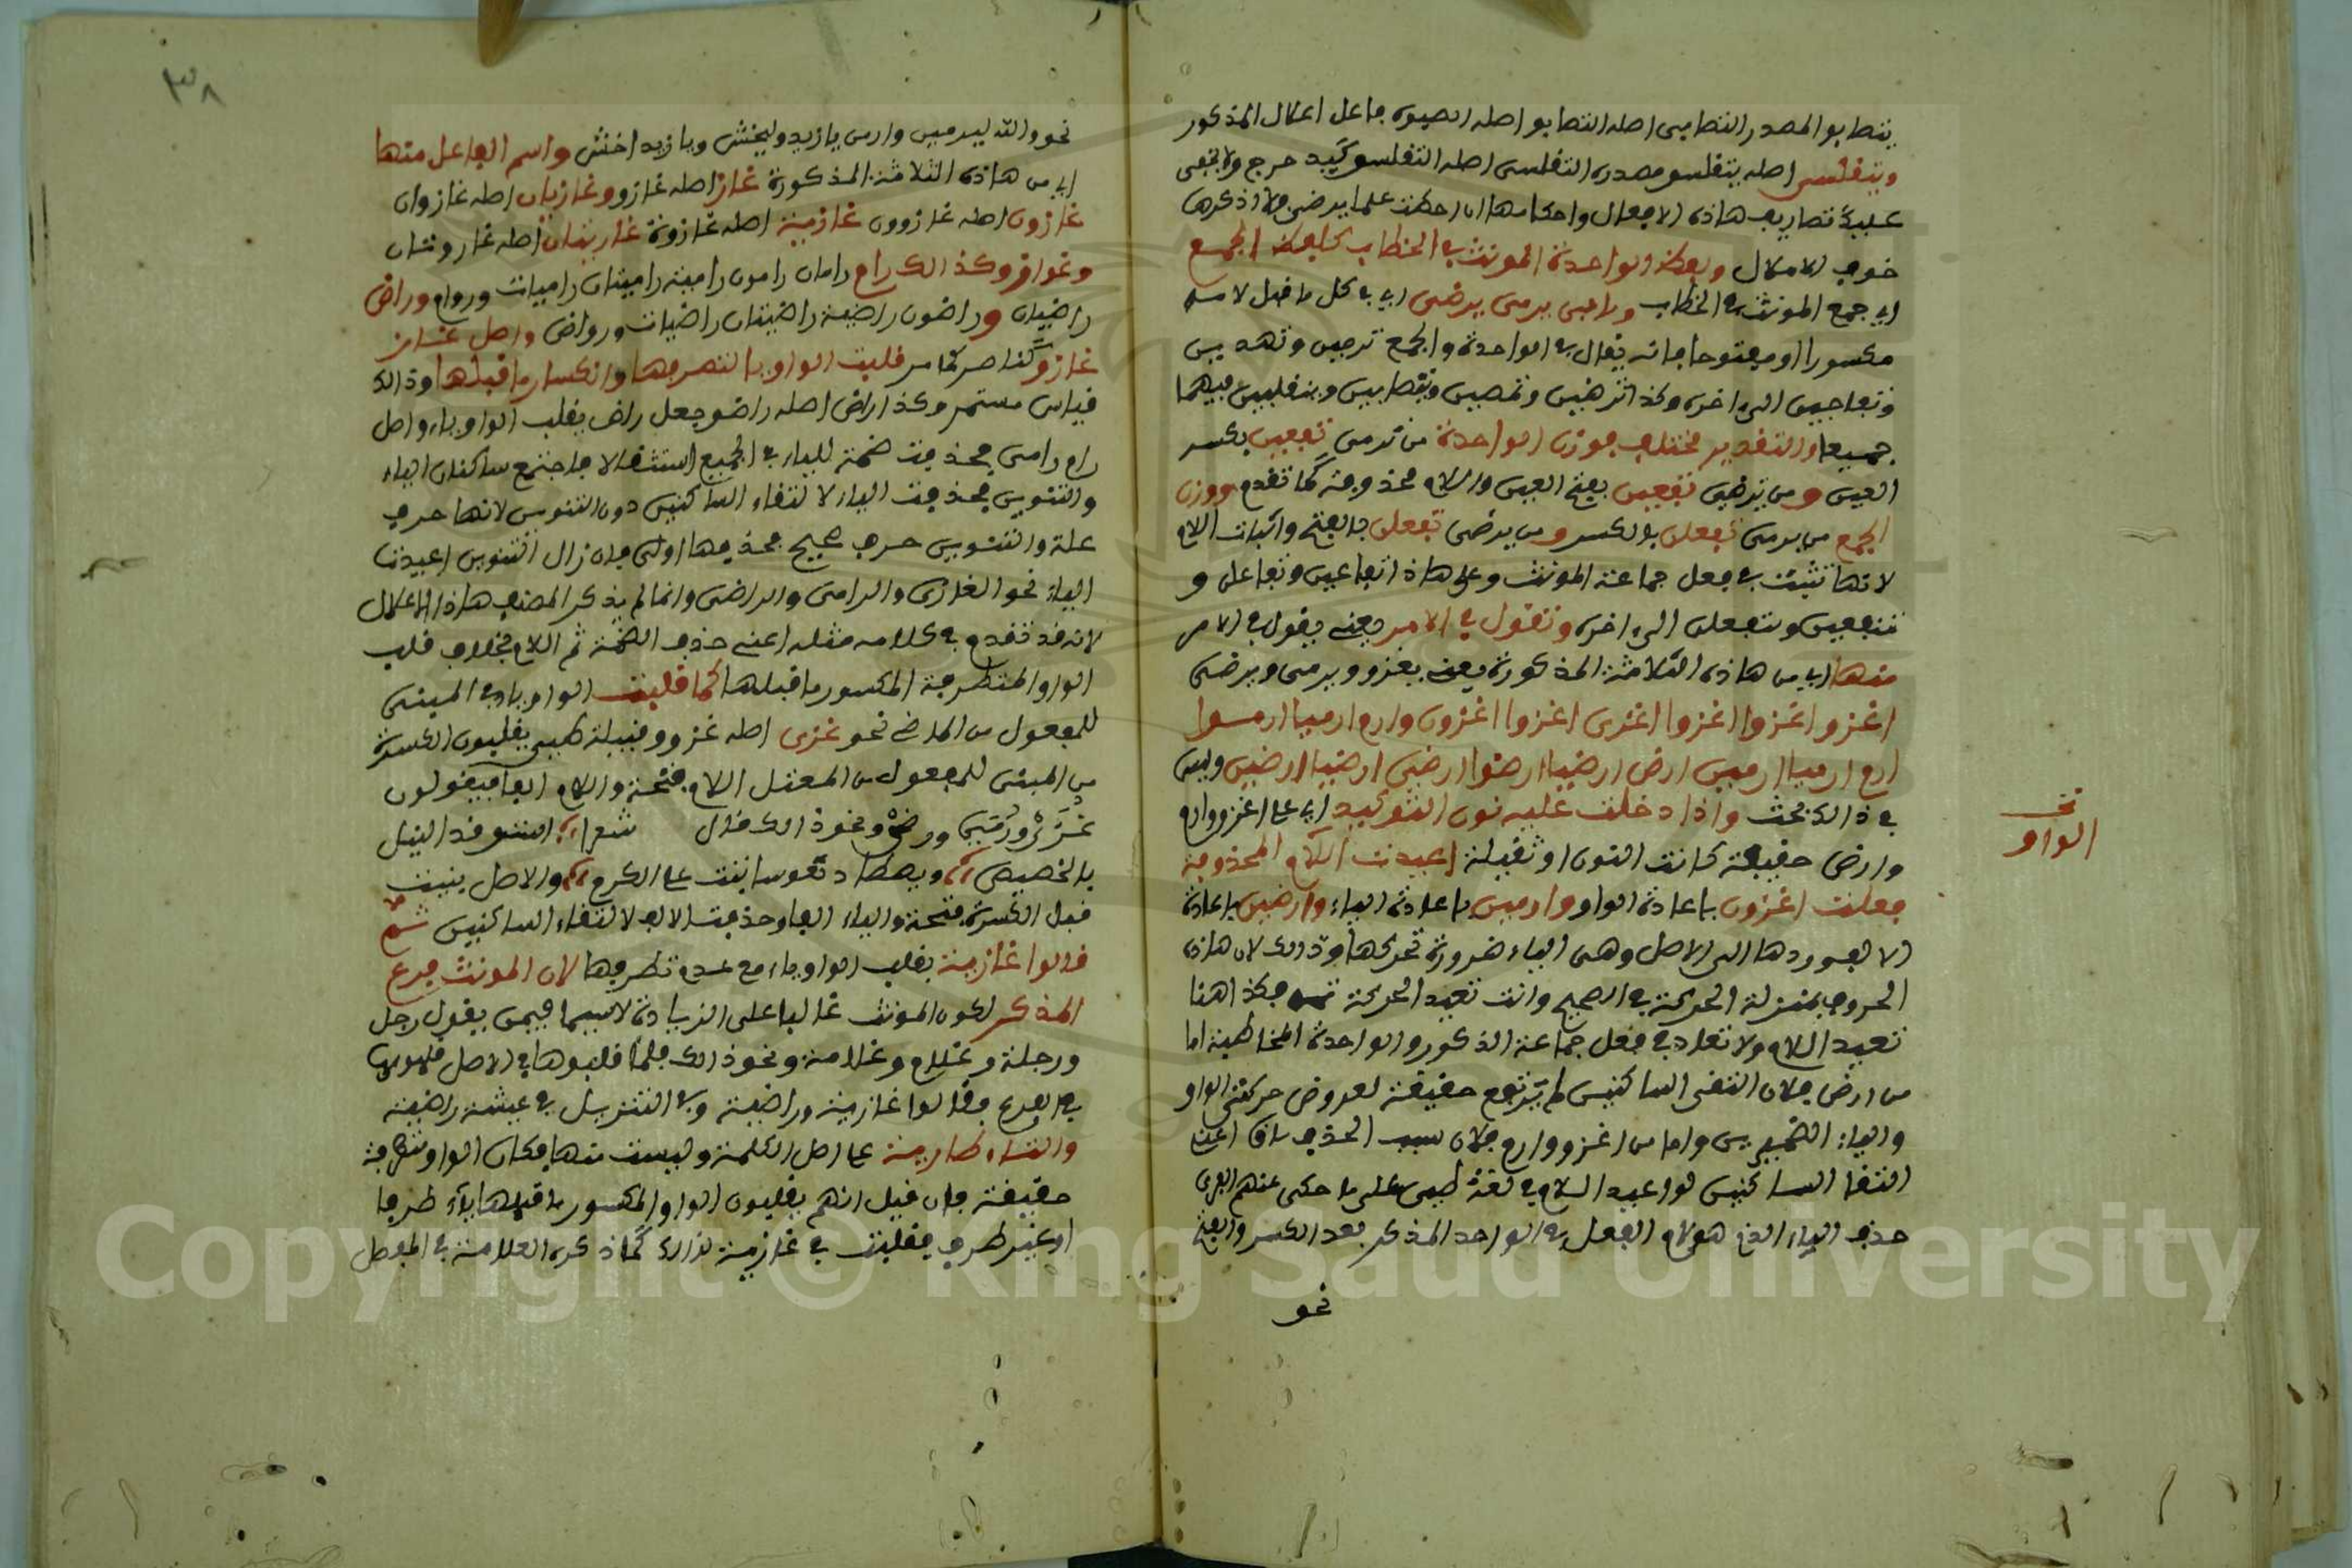 يتصابو المصدر التصابى اصله التصابو اصله الصبوة فاعل اعلال المذكور
ويتقلسى اصله يتقلسو مصدره التقلسى اصله التقلسو كيد حرج ولا يخفى
عليك تصاريف هاذه الافعال واحكامها ان احطت علما يرضى فلا اذكرها
خوف الاملال ولفظ الواحدة المونث فى الخطاب كلفظ الجمع
اى جمع المونث فى الخطاب وبابى يرمى يرضى اى فى كل ما قبل لامه
مكسورا او مفتوحا فانه يقال فى الواحدة والجمع ترمين وتهدين
وتناجين الى اخره وكذا ترضين وتمصين وتتصابين وتتقلسين فيهما
جميعا والتقدير مختلف فوزن الواحدة من ترمى تفعين بكسر
العين ومن ترضى تفعين بفتح العين واللام محذوفة كما تقدم ووزن
الجمع من يرمى تفعلن بالكسر ومن يرضى تفعلن بالفتح واثبات اللام
لانها تثبت فى فعل جماعة المونث وعلى هاذا تفاعين وتفاعلن و
تتفعين وتتفعلن الى اخره وتقول فى الامر يعنى يقول فى الامر
منها اى من هاذه الثلاثة المذكورة يعنى يغزو ويرمى ويرضى
اغز اغزوا اغزوا اغزى اغزوا اغزون وارم ارميا ارموا
ارم ارميا ارمين ارض ارضيا ارضوا ارضى ارضيا ارضين وليس
فى ذالك بحث واذا دخلت عليه نون التوكيد اى على اغز وارم
وارض خفيفة كانت النون او ثقيلة اعيدت اللام المحذوفة
فعلت اغزون باعادة الواو وارمين باعادة الياء وارضين باعادة
الالف وردها الى الاصل وهى الياء ضرورة تحركها وذالك لان هاذه
الحروف بمنزلة الحركة فى الصحيح وانت تعيد الحركة ثم فكذا هنا
تعيد اللام ولا تعاد فى فعل جماعة الذكور والواحدة المخاطبة اما
من ارض فلان التقى الساكنين لم يرتفع حقيقة لعروض حركتى الواو
والياء الضميرين واما من اغز وارم فلان سبب الحذف باق اعنى
التقا الساكنين لو اعيد اللام فى لغة طيى على ما حكى عنهم الفراء
حذف الياء الذى هو لام الفعل فى الواحد المذكر بعد الكسر والفتح
نحو
نخ
الواو
٣٨
نحو والله ليرمين وارمن يا زيد وليخشن ويا زيد اخشن واسم الفاعل منها
اى من هاذه الثلاثة المذكورة غاز اصله غازو وغازيان اصله غازوان
غازون اصله غازوون غازية اصله غازوة غازيتان اصله غازوتان
وغواز وكذالك رام راميان رامون رامية راميتان راميات وروام وراض
راضيان وراضون راضية راضيتان راضيات ورواض واصل غاز
غازو كناصر كما مر قلبت الواو يا لتطرفها وانكسار ما قبلها وذالك
قياس مستمر وكذا راض اصله راضو جعل راض بقلب الواو ياء واصل
رام رامى فحذفت ضمة للياء فى الجميع استثقالا فاجتمع ساكنان الياء
والتنوين فحذفت الياء لالتقاء الساكنين دون التنوين لانها حرف
علة والتنوين حرف صحيح فحذفها اولى فان زال التنوين اعيدت
الياء نحو الغازى والرامى والراضى وانما لم يذكر المصنف هاذا الاعلال
لانه قد تقدم فى كلامه مثله اعنى حذف الضمة ثم اللام بخلاف قلب
الواو المتطرفة المكسور ما قبلها كما قلبت الواو يا فى المبنى
للمفعول من الماضى نحو غزى اصله غزو وقبيلة طيى يقلبون الكسرة
من المبنى للمفعول من المعتل اللام فتحة واللام الفا فيقولون
غزى ورمى ورضى ونحو ذالك قال شعرا نستوقد النبل
بالحضيض ونصطاد نفوسا بنت على الكرم والاصل بنيت
فعل الكسرة فتحة والياء الفا وحذفت الالف لالتقاء الساكنين ثم
قالوا غازية بقلب الواو ياء مع عدم تطرفها لان المونث فرع
المذكر لكون المونث غالبا على الزيادة لاسيما فيمن يقول رجل
ورجلة وغلام وغلامة ونحو ذالك فلما قلبوها فى الاصل قلبوها
فى الفرع وقالوا غازية وراضية وفى التنزيل فى عيشة راضية
والتاء طارية على اصل الكلمة وليست منها فكان الواو متطرفة
حقيقة فان قيل انهم يقلبون الواو المكسور ما قبلها ياء طرفا
او غير طرف فقلبت فى غازية لذالك كما ذكره العلامة فى المفصل
Copyright © King Saud University